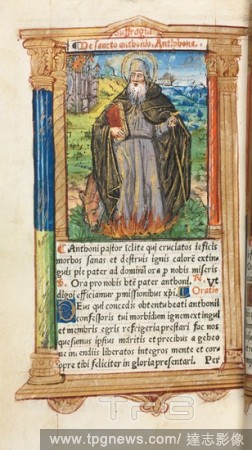 Suffragia
De sancto anthonio. Antiphona.
Anthoni pastor iclite qui cruciatos reficis
morbos sanas et destruis ignis calorē extin
guis pie pater ad dominū ora p nobis miseris
Ora pro nobis bt̄e pater anthoni. Vt
digni efficiamur pmissionibus xp̄i. Oratio
Deus qui concedis obtentu beati anthonii
confessoris tui morbidum ignem extingui
et membris egris refrigeria prestari fac nos
quesumus ipsius meritis et precibus a gehen
ne incendiis liberatos integros mente et cor
pore tibi feliciter in gloria presentari. Per
TPG
www.tpgnews.com / 達志影像